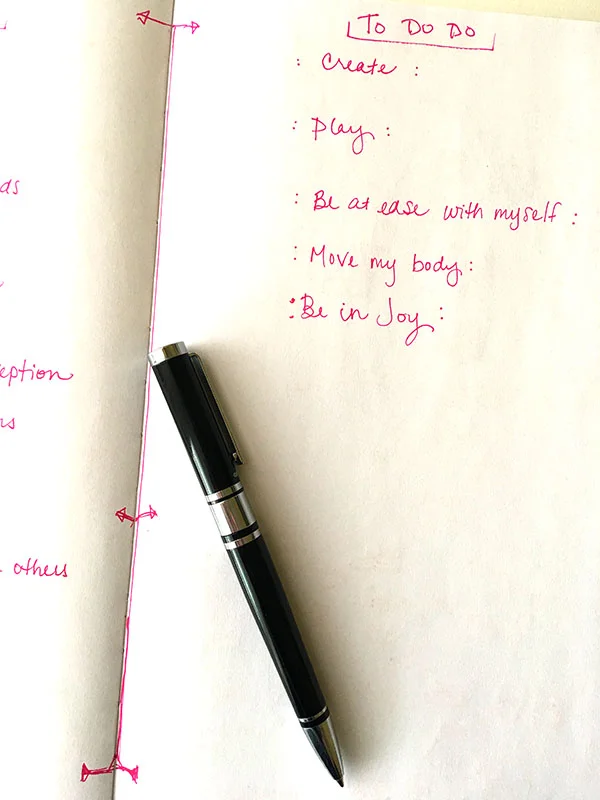 TO DO DO
: Create :
: Play :
: Be at ease with myself :
: Move my body :
: Be in Joy :
others